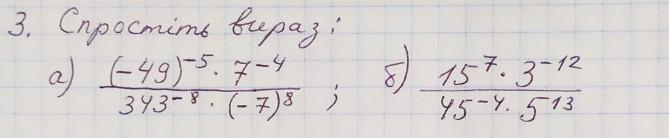 3. Спростіть вираз:
а) \frac{(-49)^{-5} \cdot 7^{-4}}{343^{-8} \cdot (-7)^{8}} ; б) \frac{15^{7} \cdot 3^{-12}}{45^{-4} \cdot 5^{13}}